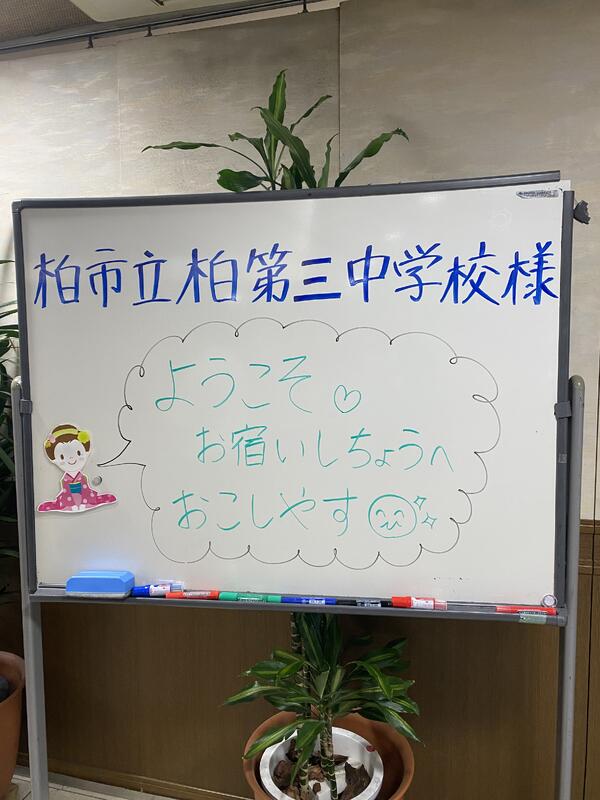 柏市立柏第三中学校様
ようこそ♡
お宿いしちょうへ
おこしやす